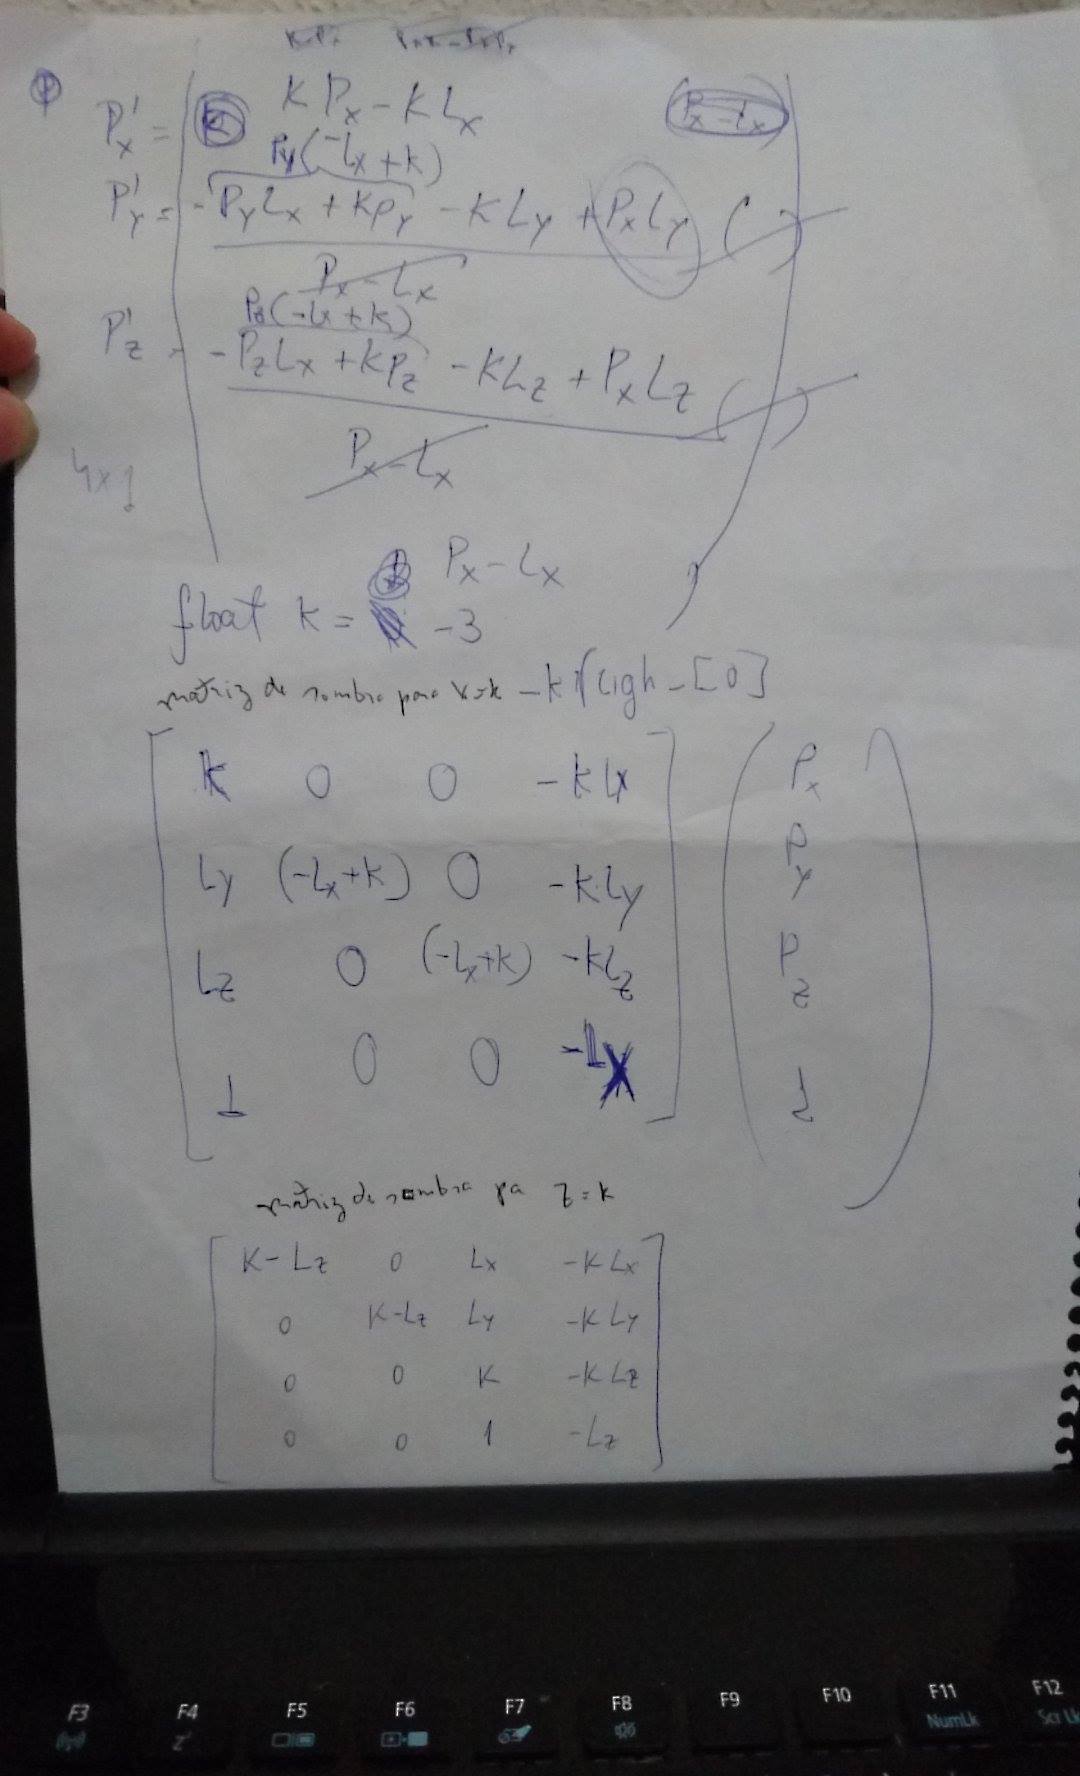 P'x = K Px - K Lx (Px - Lx)
Py(-Lx + k)
P'y = -PyLx + KPy - K Ly + PxLy ( )
Px - Lx
Pz(-Lx + K)
P'z = -PzLx + KPz - KLz + PxLz ( )
Px - Lx
4x1
Px - Lx
float K = -3
matriz de sombra para x=k -k*(ligh-[0]
K 0 0 -K Lx Px
Ly (-Lx+K) 0 -K Ly Py
Lz 0 (-Lx+K) -KLz Pz
1 0 0 -Lx 1
matriz de sombra pa z=k
K-Lz 0 Lx -K Lx
0 K-Lz Ly -K Ly
0 0 K -K Lz
0 0 1 -Lz
F3 F4 F5 F6 F7 F8 F9 F10 F11 F12
NumLk Scr Lk